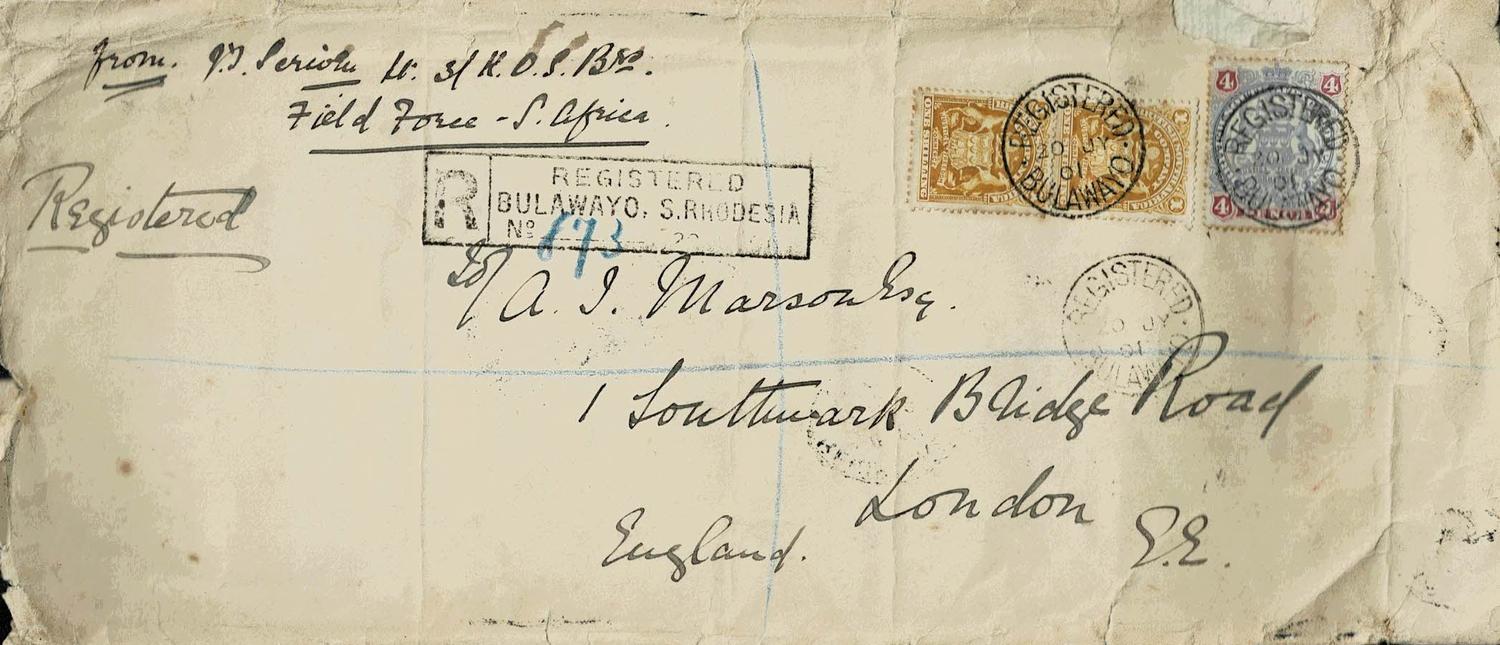 from.
Lt. 3/ K.O.S. Brs.
Field Force - S. Africa.
Registered
R REGISTERED
BULAWAYO, S. RHODESIA
Nº 673
To/ A. I. Marson Esq.
1 Southwark Bridge Road
London S.E.
England.
ONE SHILLING
REGISTERED
20 JY
01
BULAWAYO
4 4
4
REGISTERED
20 JY
01
BULAWAYO
REGISTERED
20 JY
01
BULAWAYO